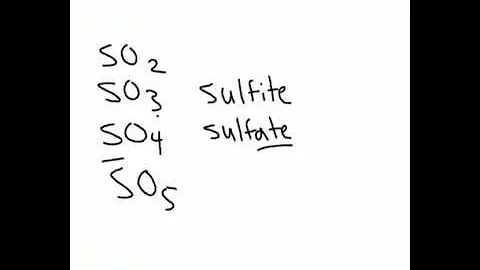 SO2
SO3 sulfite
SO4 sulfate
SO5